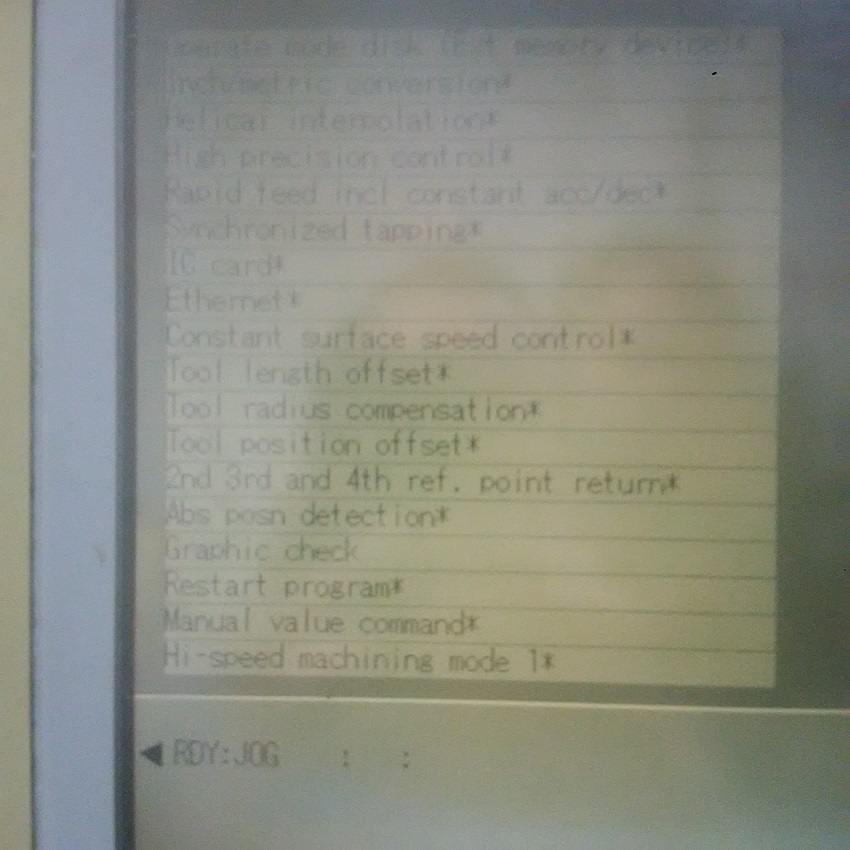 Operate mode disk (Ext memory device)*
Inch/metric conversion*
Helical interpolation*
High precision control*
Rapid feed incl constant acc/dec*
Synchronized tapping*
IC card*
Ethernet*
Constant surface speed control*
Tool length offset*
Tool radius compensation*
Tool position offset*
2nd 3rd and 4th ref. point return*
Abs posn detection*
Graphic check
Restart program*
Manual value command*
Hi-speed machining mode 1*
◀ RDY:JOG : :